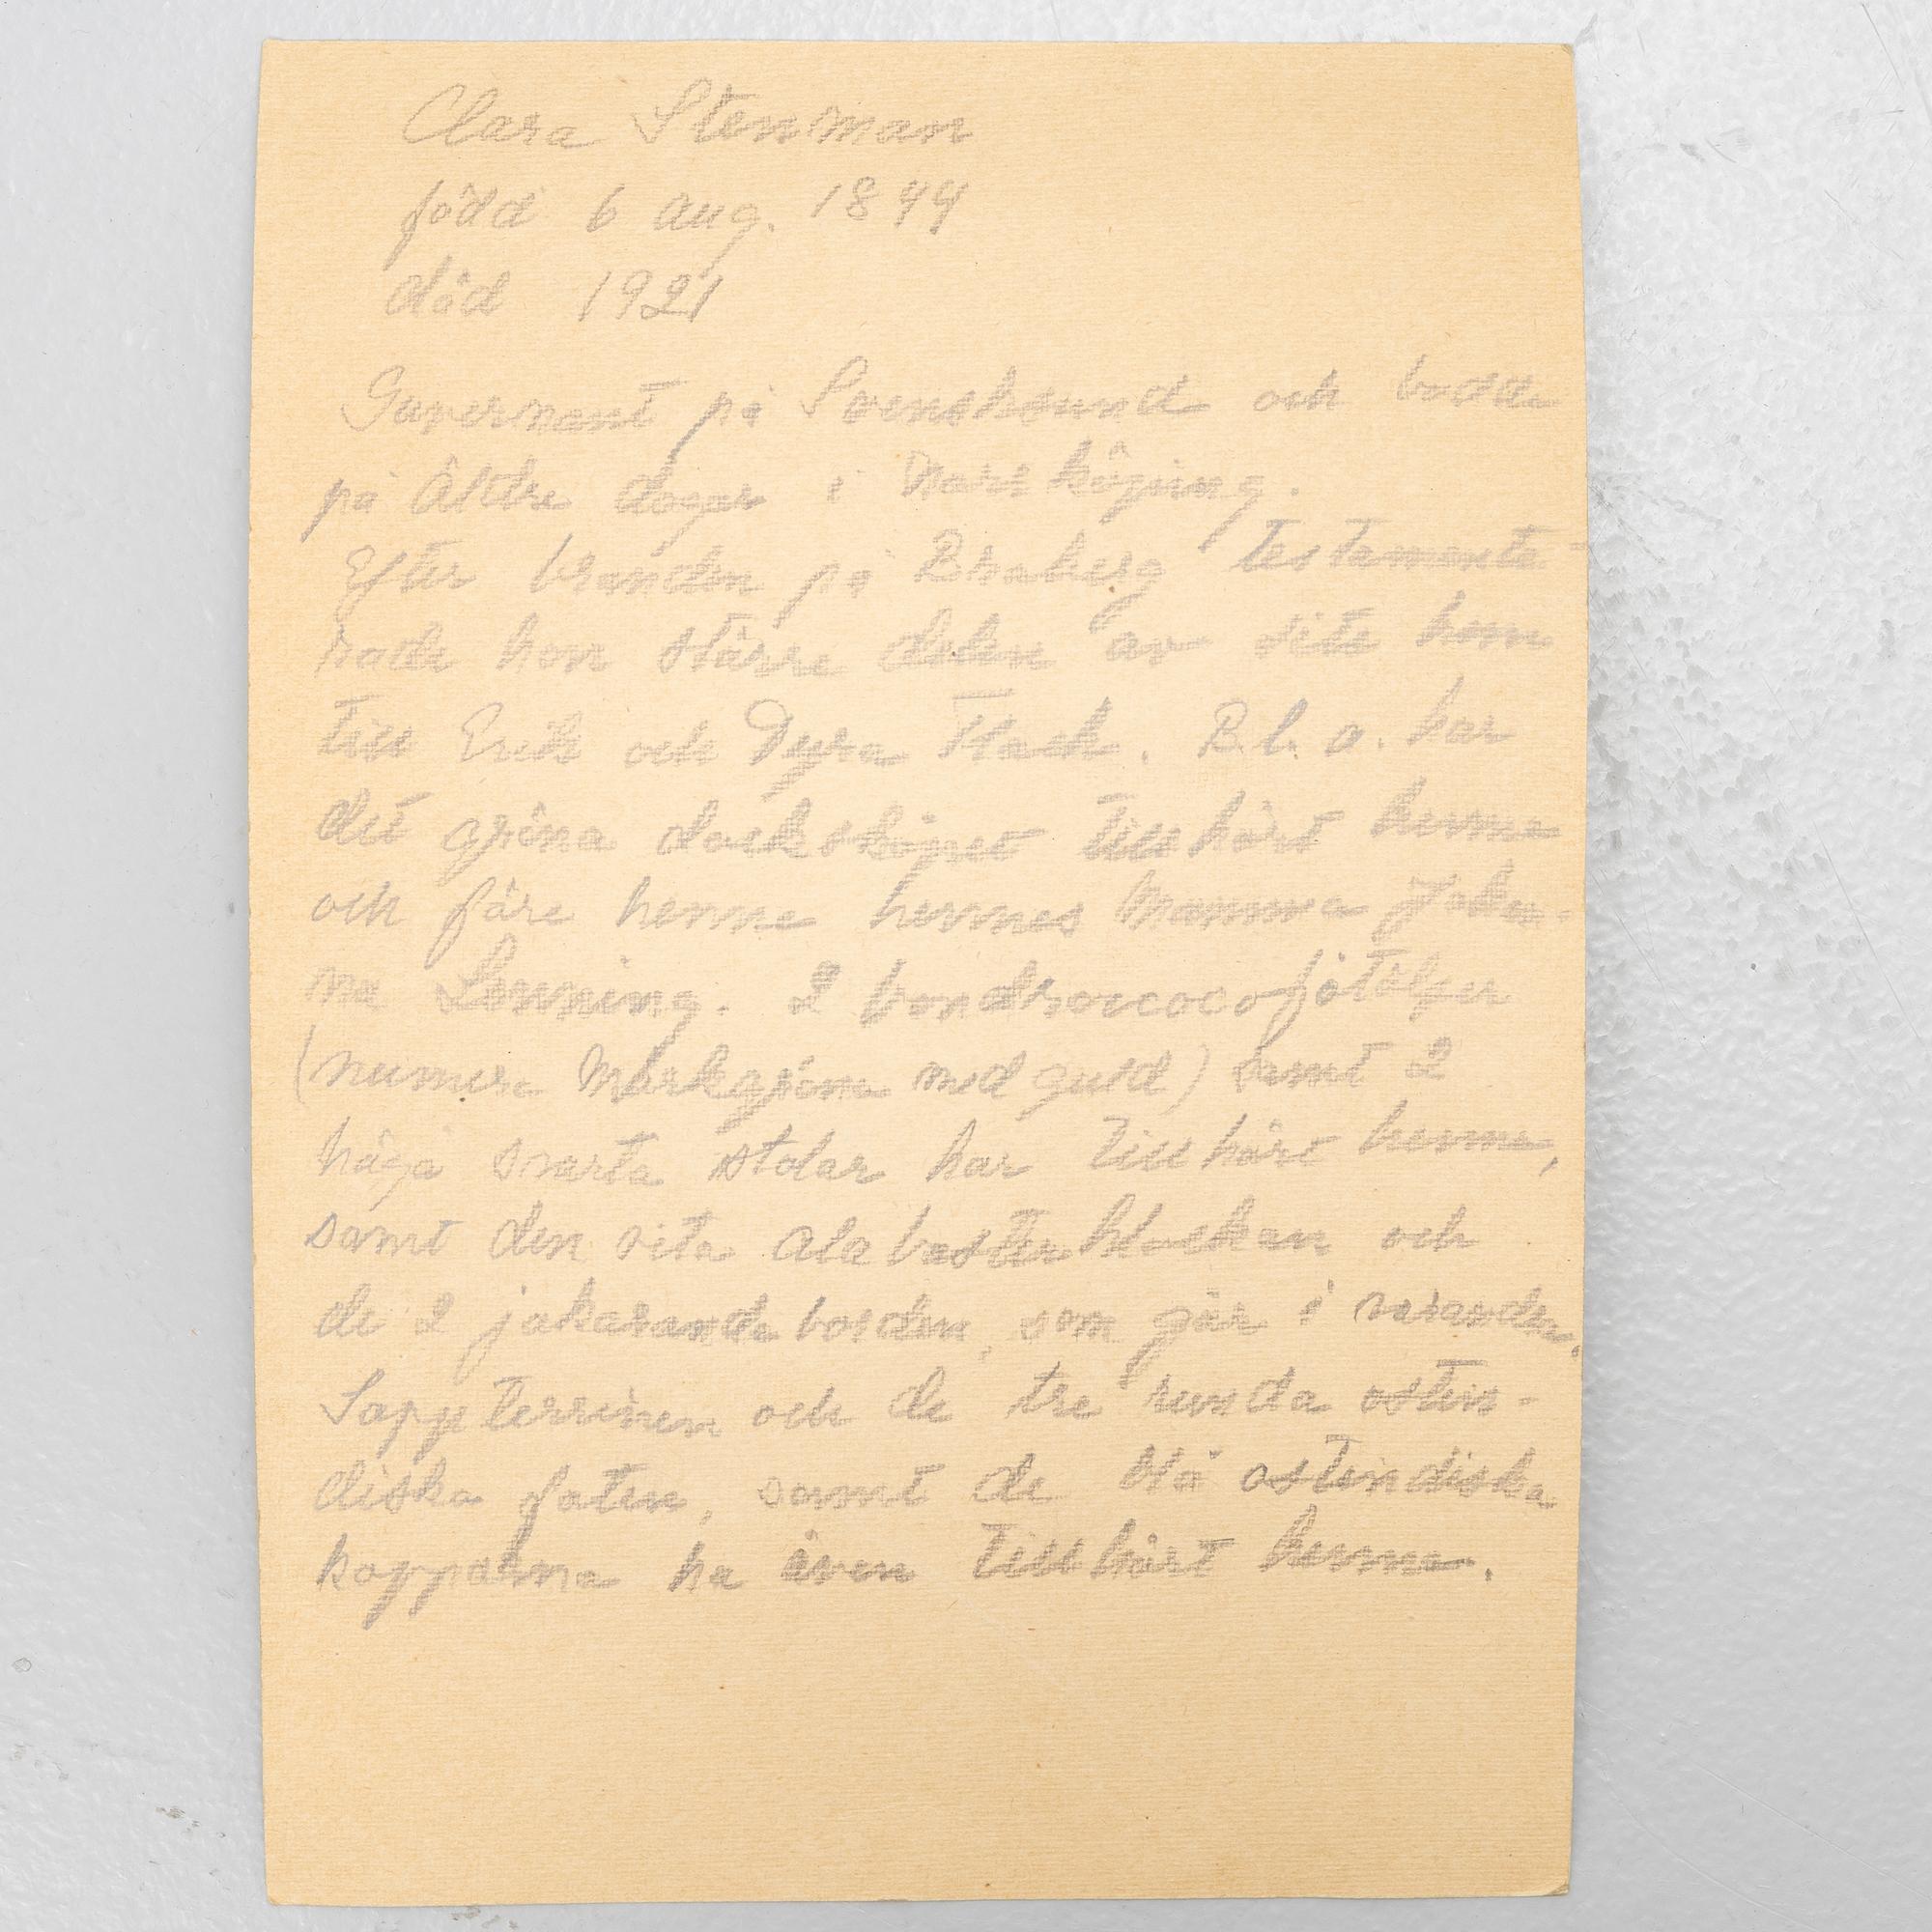 Clara Stenman
född 6 aug. 1844
död 1921
Guvernant på Svensksund och bodde
på äldre dagar i Norrköping.
Efter branden på Braberg testamente-
rade hon större delen av sitt hem
till Erik och Dyra Flach. B.l.a. har
det gröna dockskåpet tillhört henne
och före henne hennes Mamma Johan-
na Lenning. 2 bondroccocofötöljer
(numera mörkgröna med guld) samt 2
höga svarta stolar har tillhört henne,
samt den vita alabasterklockan och
de 2 jakarandaborden, som går i varandra.
Soppterrinen och de tre runda ostin-
diska faten, samt de blå ostindiska
kopparna ha även tillhört henne.